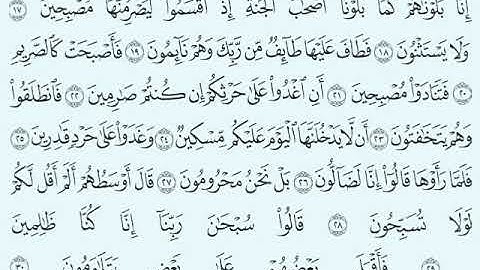 إِنَّا بَلَوْنَٰهُمْ كَمَا بَلَوْنَآ أَصْحَٰبَ ٱلْجَنَّةِ إِذْ أَقْسَمُوا۟ لَيَصْرِمُنَّهَا مُصْبِحِينَ ١٧
وَلَا يَسْتَثْنُونَ ١٨ فَطَافَ عَلَيْهَا طَآئِفٌ مِّن رَّبِّكَ وَهُمْ نَآئِمُونَ ١٩ فَأَصْبَحَتْ كَٱلصَّرِيمِ
٢٠ فَتَنَادَوْا۟ مُصْبِحِينَ ٢١ أَنِ ٱغْدُوا۟ عَلَىٰ حَرْثِكُمْ إِن كُنتُمْ صَٰرِمِينَ ٢٢ فَٱنطَلَقُوا۟
وَهُمْ يَتَخَٰفَتُونَ ٢٣ أَن لَّا يَدْخُلَنَّهَا ٱلْيَوْمَ عَلَيْكُم مِّسْكِينٌ ٢٤ وَغَدَوْا۟ عَلَىٰ حَرْدٍ قَٰدِرِينَ ٢٥
فَلَمَّا رَأَوْهَا قَالُوٓا۟ إِنَّا لَضَآلُّونَ ٢٦ بَلْ نَحْنُ مَحْرُومُونَ ٢٧ قَالَ أَوْسَطُهُمْ أَلَمْ أَقُل لَّكُمْ
لَوْلَا تُسَبِّحُونَ ٢٨ قَالُوا۟ سُبْحَٰنَ رَبِّنَآ إِنَّا كُنَّا ظَٰلِمِينَ
٢٩ فَأَقْبَلَ بَعْضُهُمْ عَلَىٰ بَعْضٍ يَتَلَٰوَمُونَ ٣٠